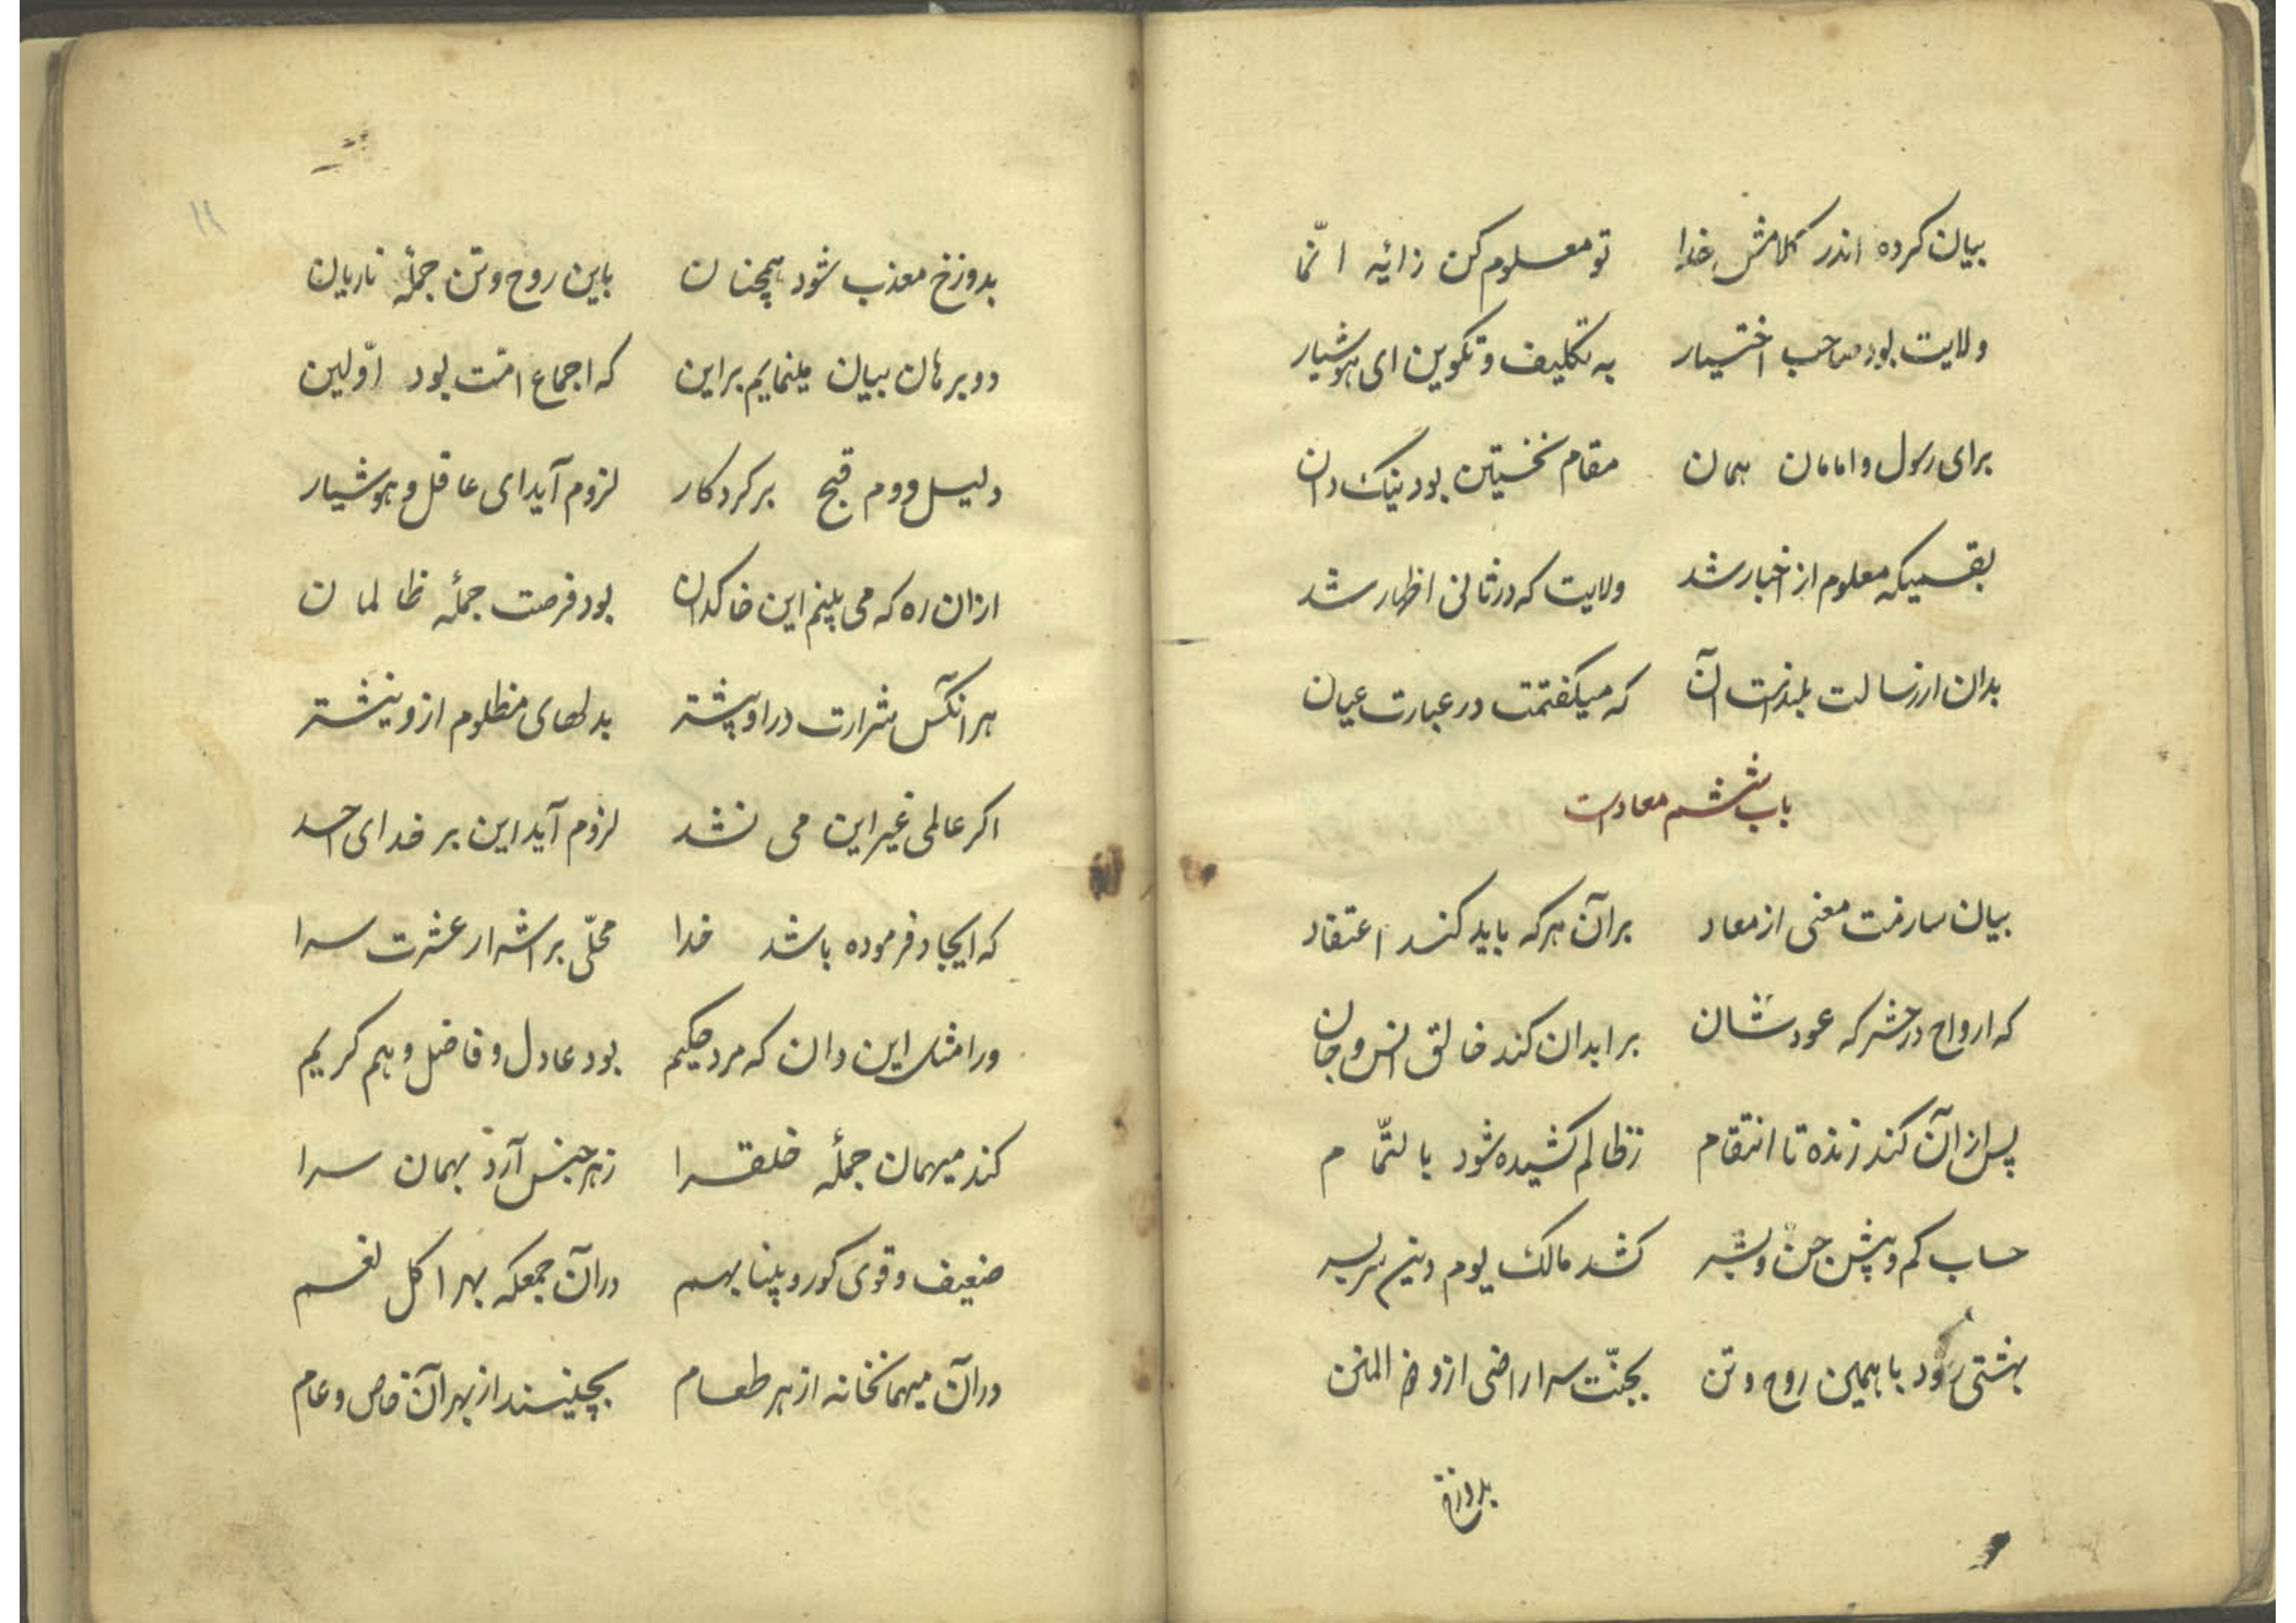 بیان کرده اندر کلامش خدا تو معلوم کن زائیه انّما
ولایت بود صاحب اختیار به تکلیف و تکوین ای هوشیار
برای رسول و امامان همان مقام نخستین بود نیک دان
بقسمیکه معلوم از اخبار شد ولایت که در ثانی اظهار شد
بدان از رسالت بلندست آن که میگفتمت در عبارت عیان
باب ششم معادست
بیان سازمت معنی از معاد بر آن هر که باید کند اعتقاد
که ارواح در حشر که عودشان بر ابدان کند خالق انس و جان
پس از آن کند زنده تا انتقام ز ظالم کشیده شود بالتّمام
حساب کم و بیش جن و بشر کشد مالک یوم دین سربسر
بهشتی رود با همین روح و تن بجنّت سرا راضی از ذو المنن
بدوزخ
۱۱
بدوزخ معذب شود همچنان باین روح و تن جملهٔ ناریان
دو برهان بیان مینمایم براین که اجماع امّت بود اوّلین
دلیل دوم قبح بر کردکار لزوم آید ای عاقل و هوشیار
ازان ره که می بینم این خاکدان بود فرصت جملهٔ ظالمان
هر انکس شرارت در او بیشتر بدلهای مظلوم ازو نیشتر
اکر عالمی غیر این می نشد لزوم آید این بر خدای احد
که ایجاد فرموده باشد خدا محلّی بر اشرار عشرت سرا
ورا مثل این دان که مرد حکیم بود عادل و فاضل و هم کریم
کند میهمان جملهٔ خلقرا ز هر جنس آرد بهمان سرا
ضعیف و قوی کور و بینا بهم در آن جمعکه بهر اکل نعم
در آن میهمانخانه از هر طعام بچینند از بهر آن خاص و عام